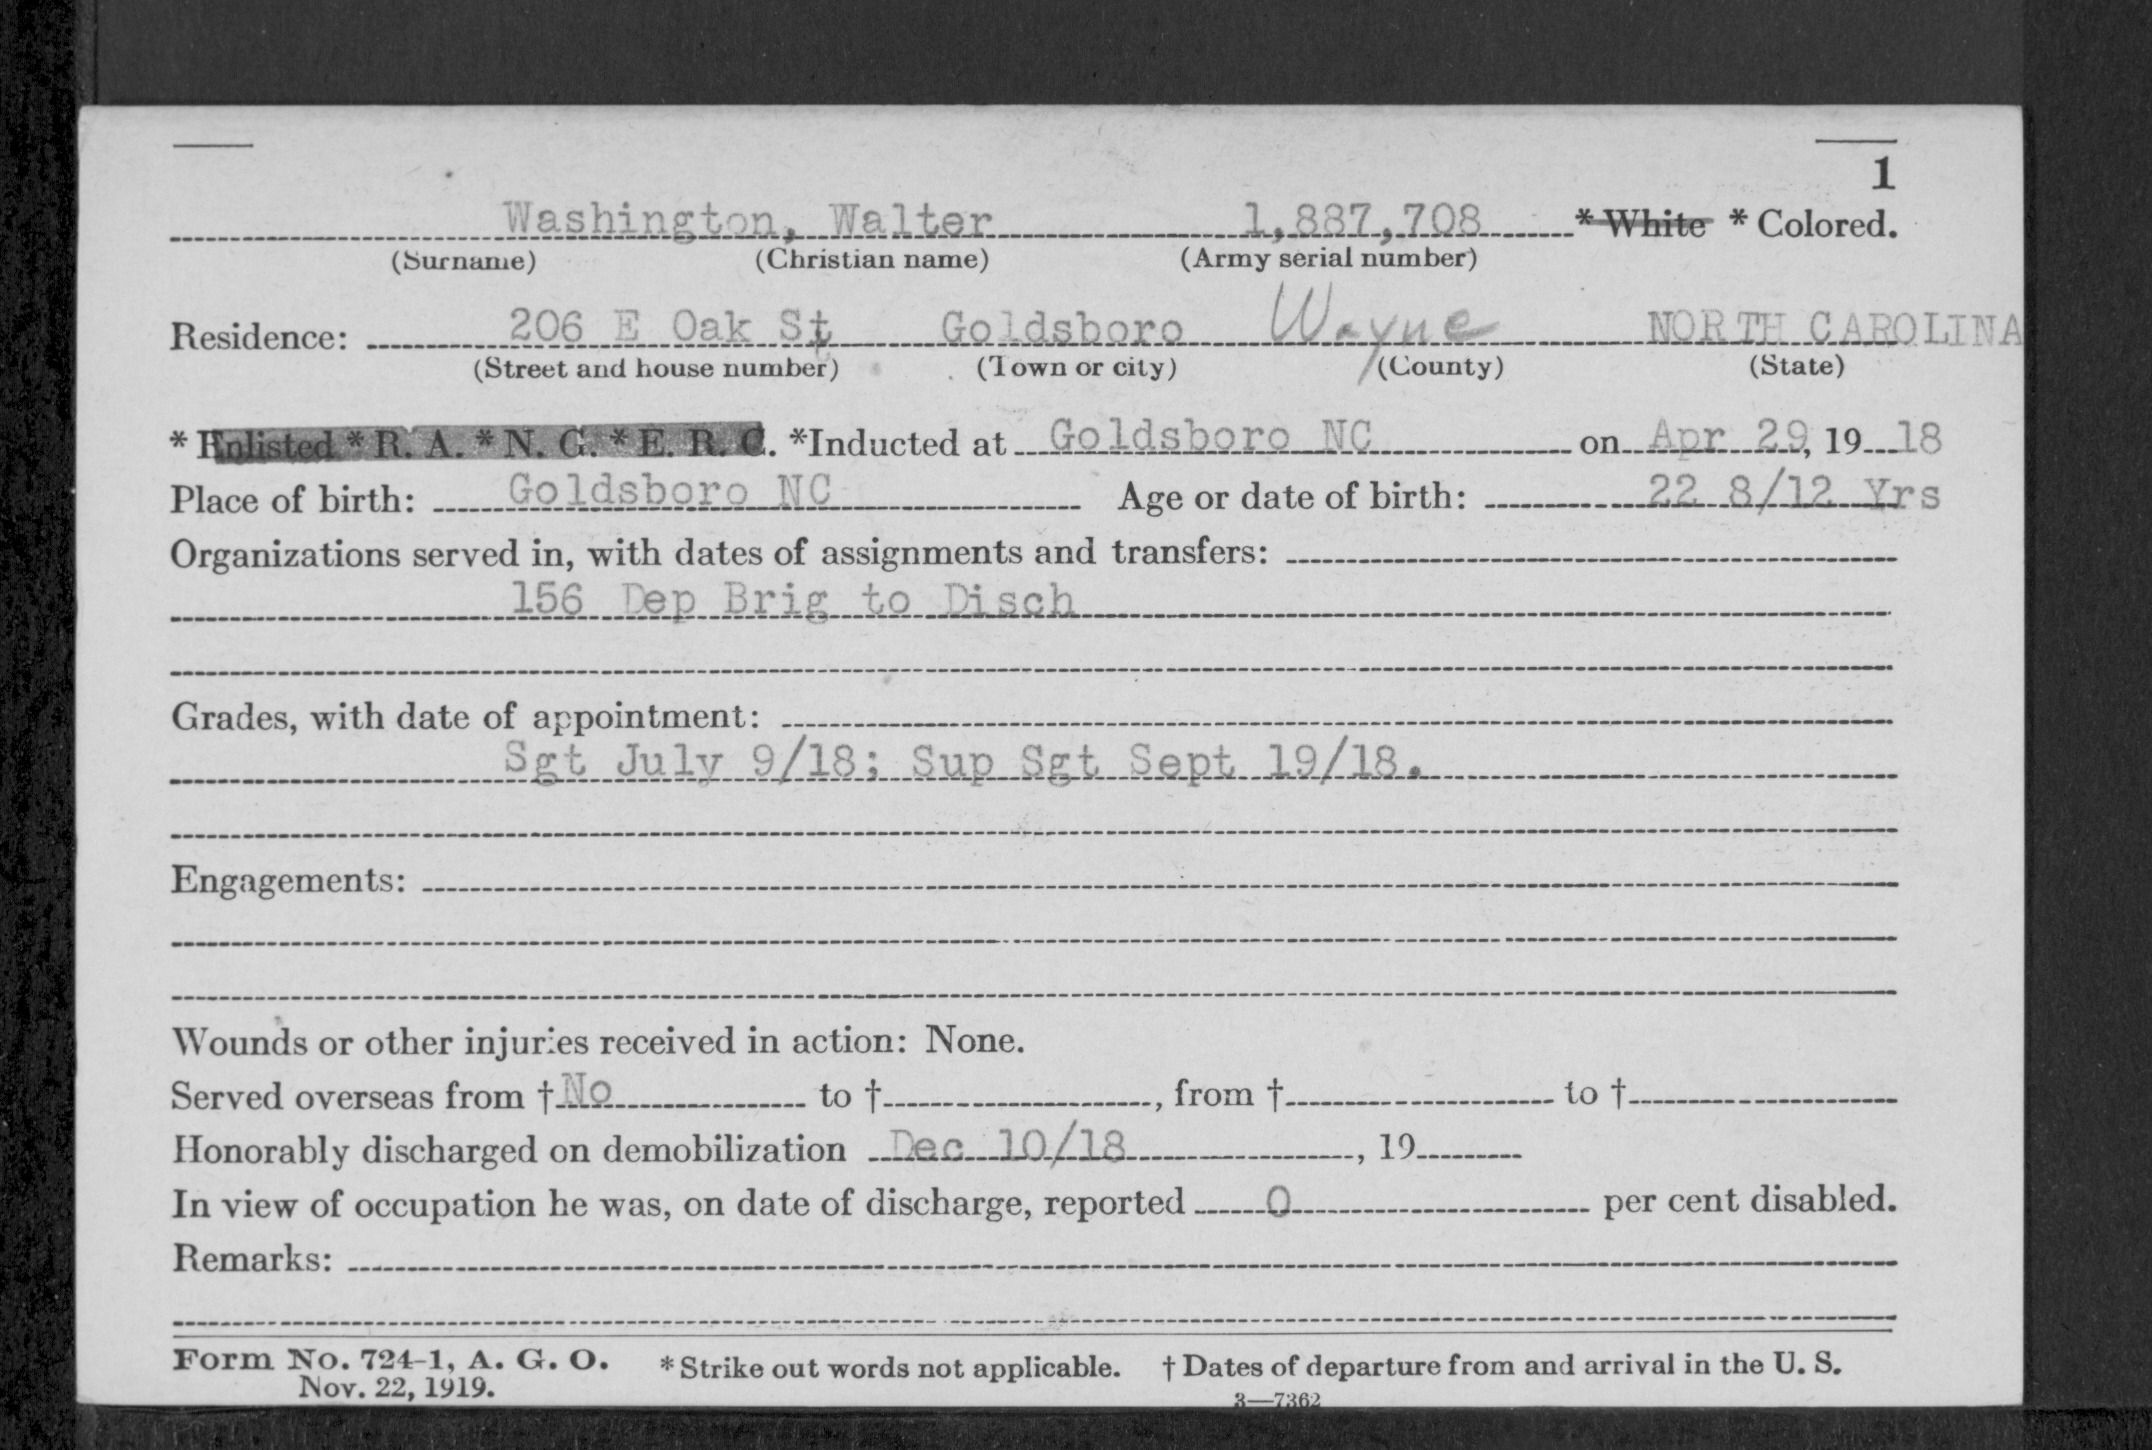 1
Washington, Walter 1,887,708 * White * Colored.
(Surname) (Christian name) (Army serial number)
Residence: 206 E Oak St Goldsboro Wayne NORTH CAROLINA
(Street and house number) (Town or city) (County) (State)
* Enlisted * R. A. * N. G. * E. R. C. *Inducted at Goldsboro NC on Apr 29, 19 18
Place of birth: Goldsboro NC Age or date of birth: 22 8/12 Yrs
Organizations served in, with dates of assignments and transfers:
156 Dep Brig to Disch
Grades, with date of appointment:
Sgt July 9/18; Sup Sgt Sept 19/18.
Engagements:
Wounds or other injuries received in action: None.
Served overseas from † No to †, from † to †
Honorably discharged on demobilization Dec 10/18, 19
In view of occupation he was, on date of discharge, reported 0 per cent disabled.
Remarks:
Form No. 724-1, A. G. O. * Strike out words not applicable. † Dates of departure from and arrival in the U. S.
Nov. 22, 1919.
3—7362